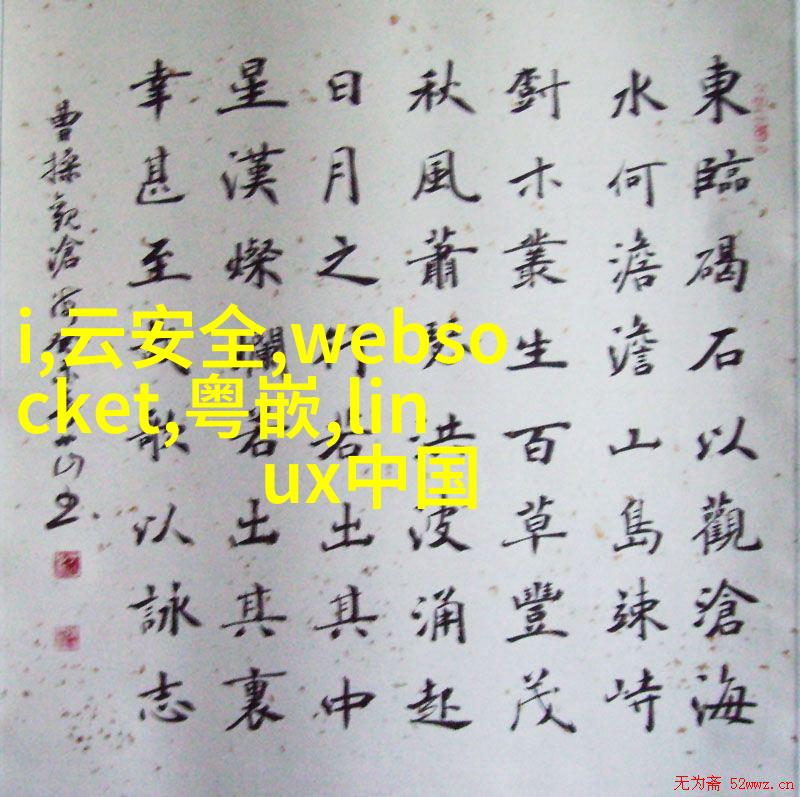 東臨碣石以觀滄海
水何澹澹山島竦峙
尌木叢生百草豐茂
秋風蕭瑟洪波涌起
日月之行若出其中
星漢燦爛若出其裏
幸甚至哉歌以詠志
曹操觀滄海
i,云安全,webso
cket,粤嵌,lin
ux中国
无为斋 52wwz.cn